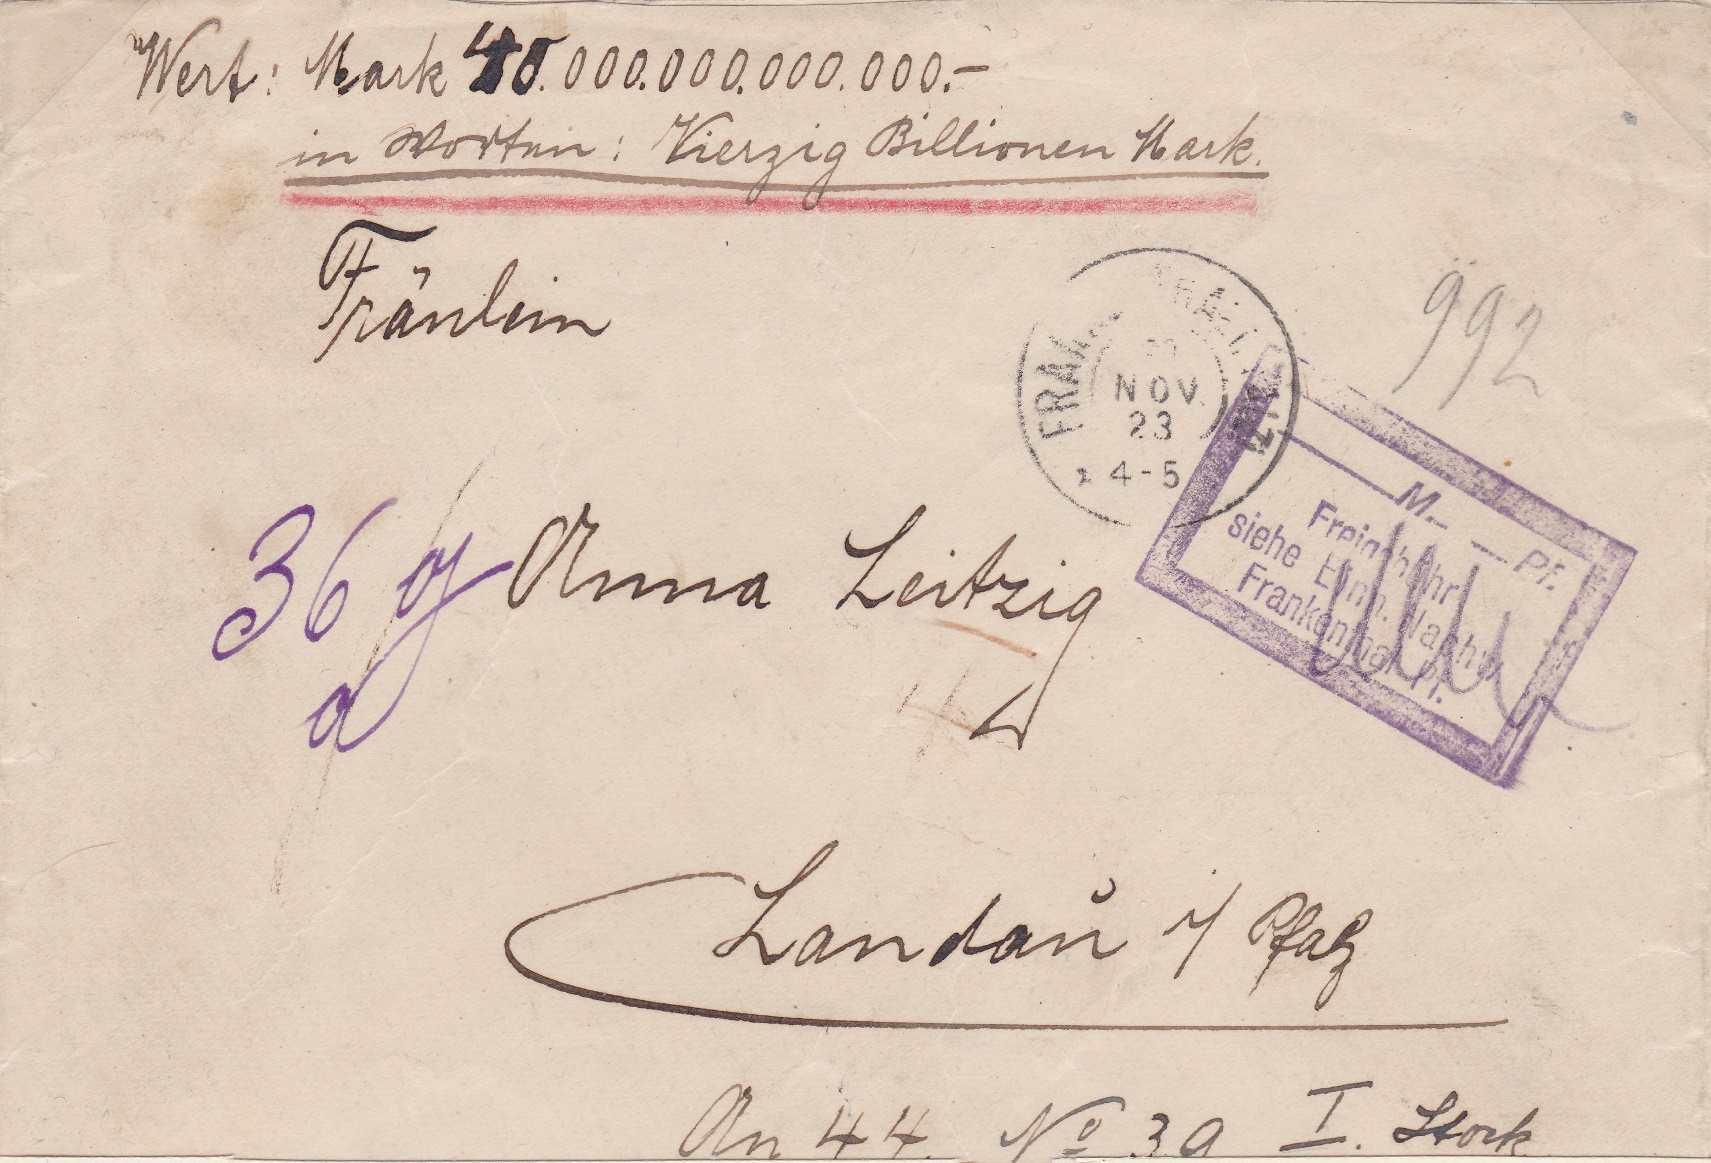 Wert: Mark 40.000.000.000.000.-
in Worten: Vierzig Billionen Mark.
Fräulein
992
NOV
23
4-5
M. Pf.
Freigebühr
siehe Einn. Nachw.
Frankenthal Pf.
36 g
Anna Leitzig
Landau i/ Pfalz
An 44. No 39 I. Stock